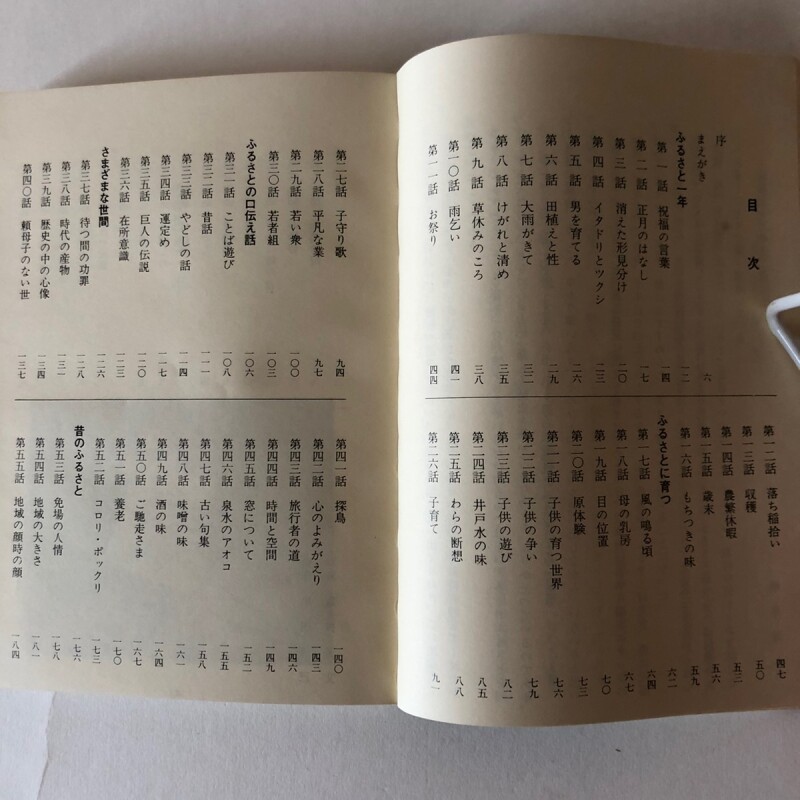 目次
序
まえがき 六
ふるさと一年 一二
第一話 祝福の言葉 一四
第二話 正月のはなし 一七
第三話 消えた形見分け 二〇
第四話 イタドリとツクシ 二三
第五話 男を育てる 二六
第六話 田植えと性 二九
第七話 大雨がきて 三二
第八話 けがれと清め 三五
第九話 草休みのころ 三八
第一〇話 雨乞い 四一
第一一話 お祭り 四四
第一二話 落ち稲拾い 四七
第一三話 収穫 五〇
第一四話 農繁休暇 五三
第一五話 歳末 五六
第一六話 もちつきの味 五九
ふるさとに育つ 六二
第一七話 風の鳴る頃 六四
第一八話 母の乳房 六七
第一九話 目の位置 七〇
第二〇話 原体験 七三
第二一話 子供の育つ世界 七六
第二二話 子供の争い 七九
第二三話 子供の遊び 八二
第二四話 井戸水の味 八五
第二五話 わらの断想 八八
第二六話 子育て 九一
第二七話 子守り歌 九四
第二八話 平凡な業 九七
第二九話 若い衆 一〇〇
第三〇話 若者組 一〇三
ふるさとの口伝え話 一〇六
第三一話 ことば遊び 一〇八
第三二話 昔話 一一一
第三三話 やどしの話 一一四
第三四話 運定め 一一七
第三五話 巨人の伝説 一二〇
第三六話 在所意識 一二三
さまざまな世間 一二六
第三七話 待つ間の功罪 一二八
第三八話 時代の産物 一三一
第三九話 歴史の中の心像 一三四
第四〇話 頼母子のない世 一三七
第四一話 探鳥 一四〇
第四二話 心のよみがえり 一四三
第四三話 旅行者の道 一四六
第四四話 時間と空間 一四九
第四五話 窓について 一五二
第四六話 泉水のアオコ 一五五
第四七話 古い句集 一五八
第四八話 味噌の味 一六一
第四九話 酒の味 一六四
第五〇話 ご馳走さま 一六七
第五一話 養老 一七〇
第五二話 コロリ・ポックリ 一七三
昔のふるさと 一七六
第五三話 免場の人情 一七八
第五四話 地域の大きさ 一八一
第五五話 地域の顔時の顔 一八四